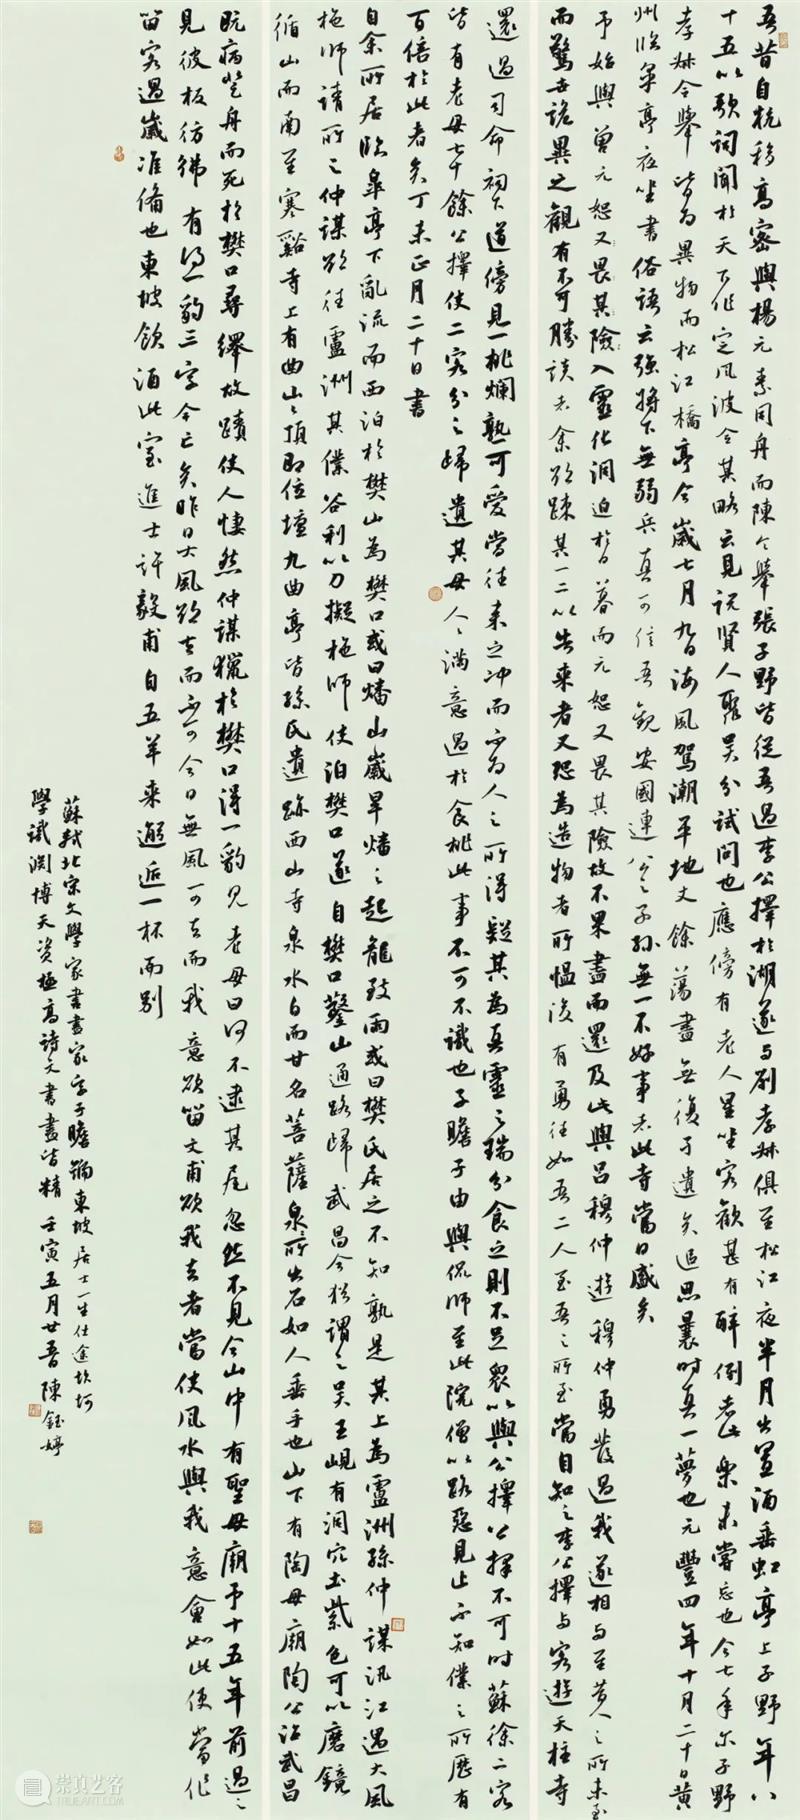 吾昔自杭移高密與楊元素同舟而陳令舉張子野皆從吾過李公擇於湖遂與劉孝叔俱至松江夜半月出置酒垂虹亭上子野年八
十五以歌詞聞於天下作定風波令其略云見說賢人聚吳分試問也應傍有老人星坐客歡甚有醉倒者此樂未嘗忘也今七年爾子野
孝叔令舉皆為異物而松江橋亭今歲七月九日海風駕潮平地丈餘蕩盡無復孑遺矣追思曩時真一夢也元豐四年十月二十日黃
州臨皋亭夜坐書俗語云強將下無弱兵真可信吾觀安國連公之子孫無一不好事者此寺當日盛矣
予始與曾元恕又畏其險入靈化洞迫於日暮而元恕又畏其險故不果盡而還及此與呂穆仲遊穆仲勇發過我遂相與至昔人之所未至
而驚世詭異之觀有不可勝談者余欲疎其一二以告來者又恐為造物者所慍後有勇往如吾二人至吾之所至當自知之李公擇與客遊天柱寺
還過司命祠下道傍見一桃爛熟可愛當往來之沖而不為人之所得疑其為真靈之瑞分食之則不足眾以與公擇公擇不可時蘇徐二客
皆有老母七十餘公擇使二客分之歸遺其母人人滿意過於食桃此事不可不識也子瞻子由與侃師至此院僧以路惡見止不知僕之所歷有
百倍於此者矣丁未正月二十日書
自余所居臨皋亭下亂流而西泊於樊山為樊口或曰燔山歲旱燔之起龍致雨或曰樊氏居之不知孰是其上為盧洲孫仲謀汎江遇大風
柂師請所之仲謀欲往盧洲其僕谷利以刀擬柂師使泊樊口遂自樊口鑿山通路歸武昌今猶謂之吳王峴有洞穴土紫色可以磨鏡
循山而南至寒谿寺上有曲山山頂即位壇九曲亭皆孫氏遺跡西山寺泉水白而甘名菩薩泉所出石如人垂手也山下有陶母廟陶公治武昌
既病登舟而死於樊口尋繹故蹟使人悽然仲謀獵於樊口得一豹見老母曰何不逮其尾忽然不見今山中有聖母廟予十五年前過之
見彼板彷彿有得一豹三字今亡矣昨日大風欲去而不可今日無風可去而我意欲留文甫欲我去者當使風水與我意會如此便當作
留客過歲准備也東坡飲酒此室進士許毅甫自五羊來邂逅一杯而別
蘇軾北宋文學家書畫家字子瞻號東坡居士一生仕途坎坷
學識淵博天資極高詩文書畫皆精壬寅五月廿吾陳鈺婷
崇真艺客